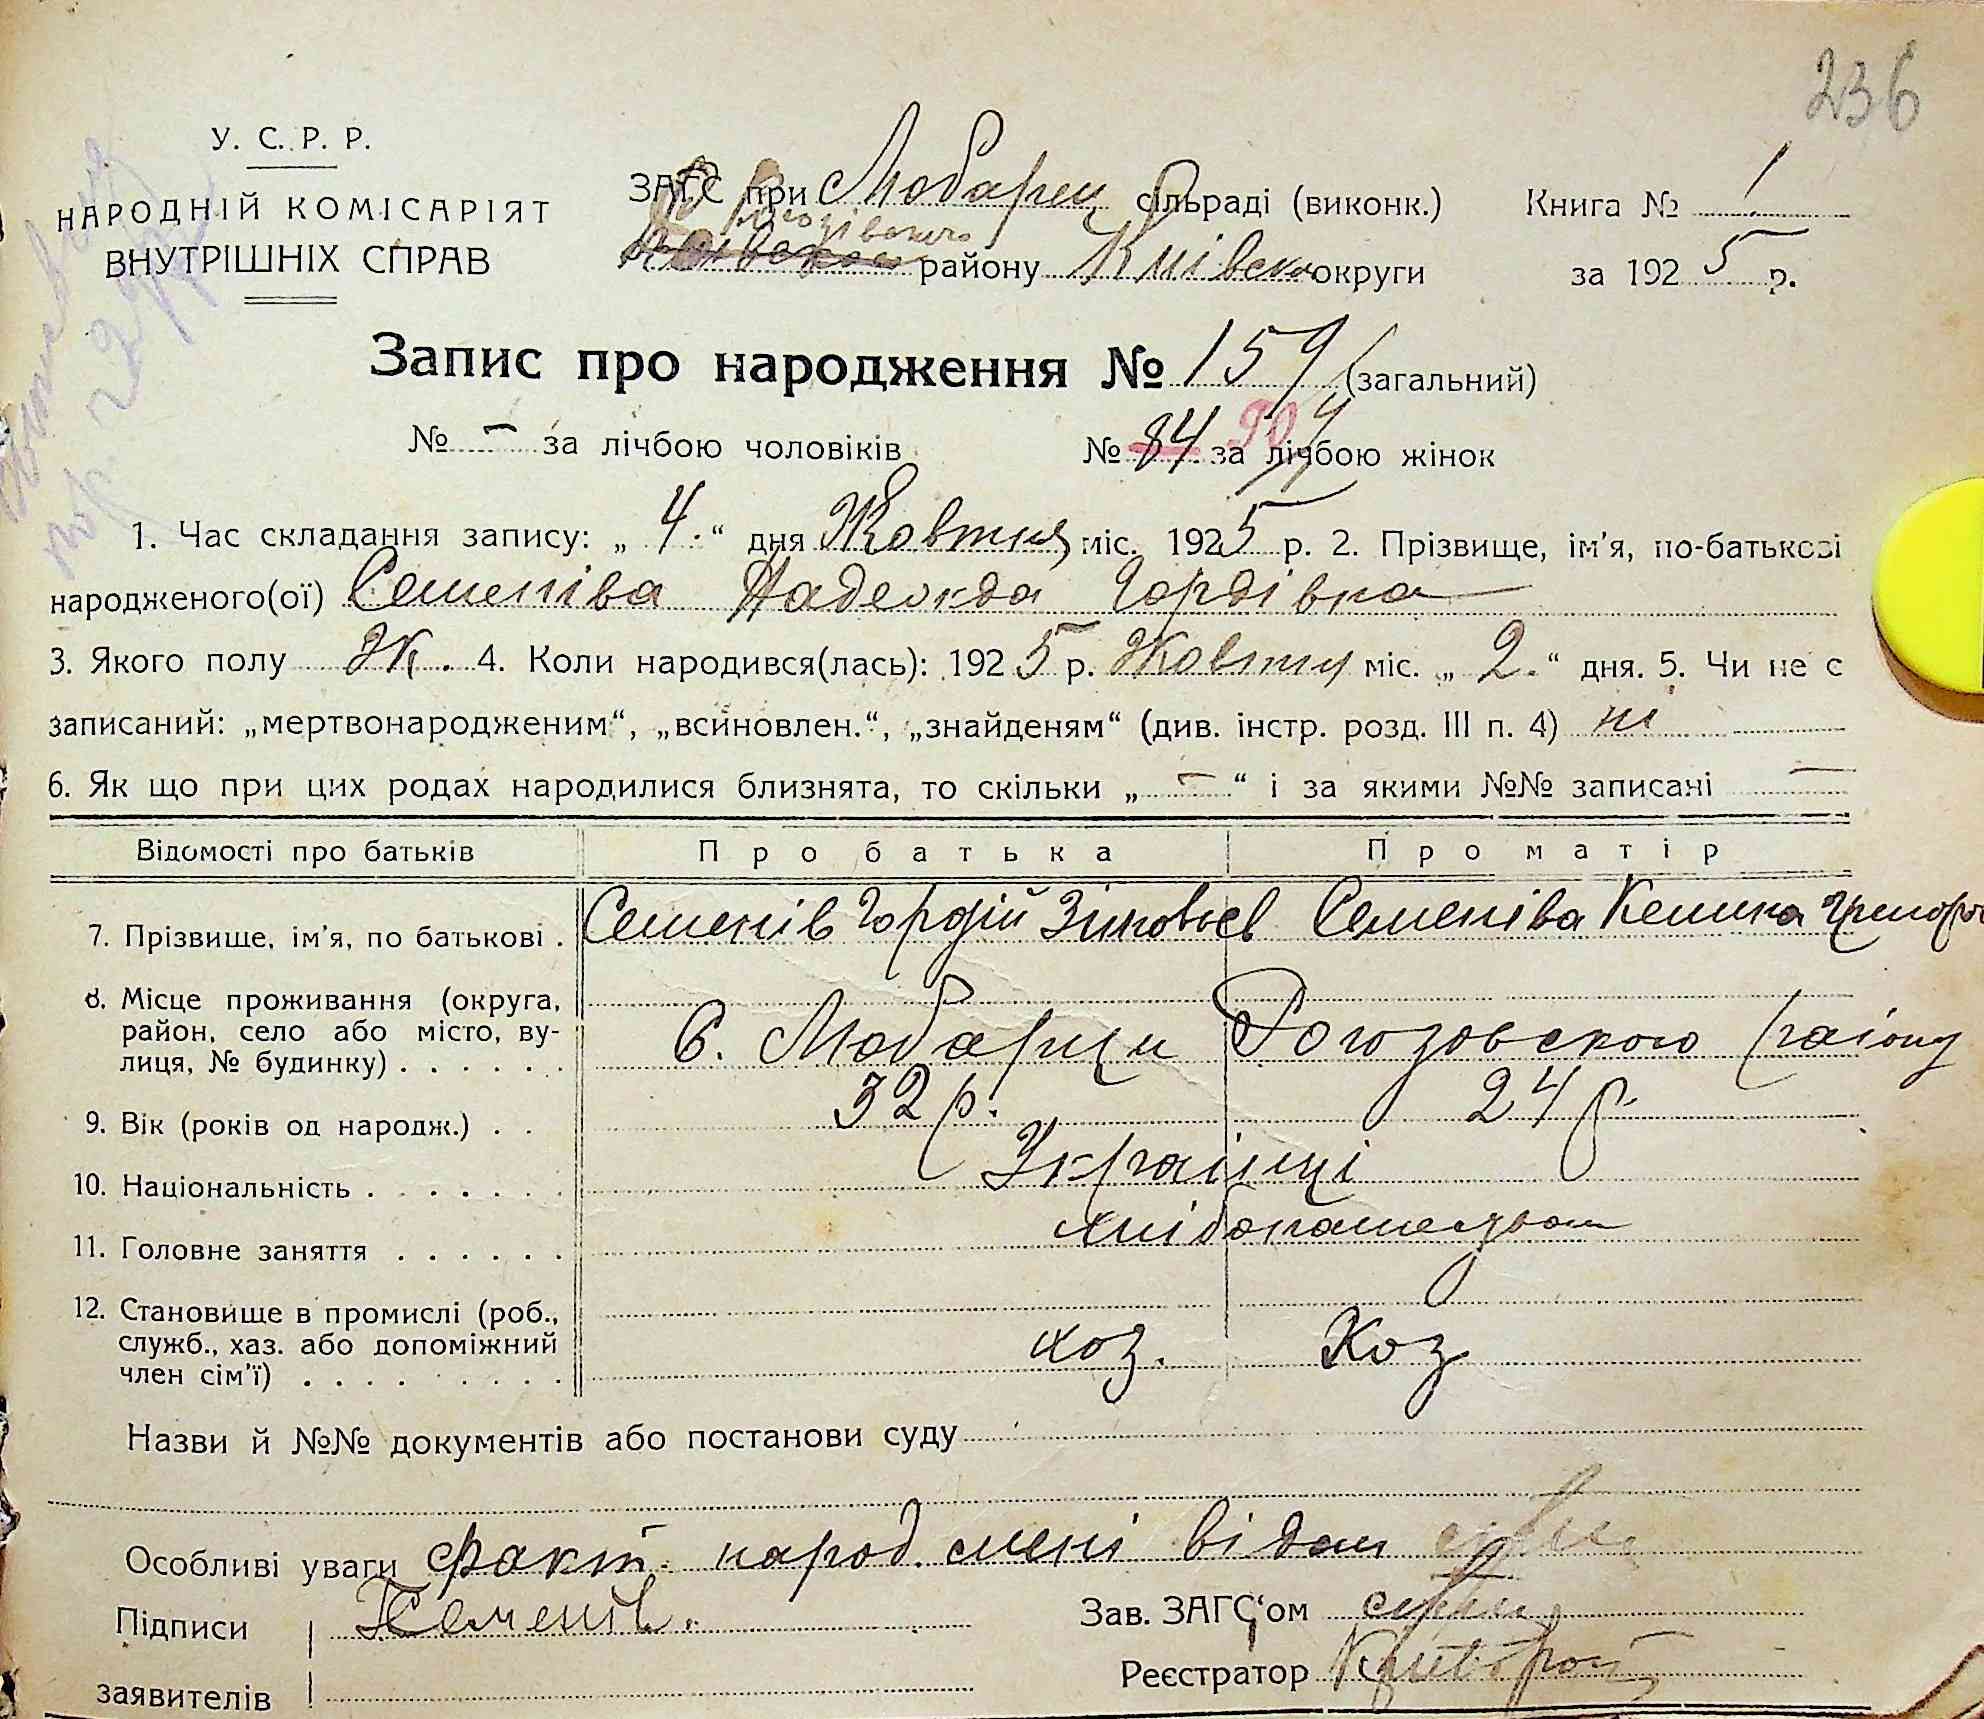 236
У. С. Р. Р.
НАРОДНІЙ КОМІСАРІЯТ
ВНУТРІШНІХ СПРАВ
ЗАГС при Любарец сільраді (виконк.)
Рогозівського району Київськ округи
Книга № 1
за 1925 р.
Запис про народження № 159 (загальний)
№ - за лічбою чоловіків № 84 90 за лічбою жінок
1. Час складання запису: „ 4. “ дня Жовтня міс. 1925 р. 2. Прізвище, ім'я, по-батькові
народженого(ої) Семенівa Надежда Гордівна
3. Якого полу Ж. 4. Коли народився(лась): 1925 р. Жовтня міс. „ 2. “ дня. 5. Чи не є
записаний: „мертвонародженим“, „всиновлен.“, „знайденям“ (див. інстр. розд. III п. 4) ні
6. Як що при цих родах народилися близнята, то скільки „ - “ і за якими №№ записані -
Відомості про батьків Про батька Про матір
7. Прізвище, ім'я, по батькові . Семенів Гордій Зіновьєв Семеніва Келина Григоро
8. Місце проживання (округа,
район, село або місто, ву-
лиця, № будинку) . . . . . . С. Любарци Рогозовского району
9. Вік (років од народж.) . . 32 р. 24 р.
10. Національність . . . . . . . Українці
11. Головне заняття . . . . . . хлібопашеством
12. Становище в промислі (роб.,
служб., хаз. або допоміжний
член сім'ї) . . . . . . . . . хоз. Хоз
Назви й №№ документів або постанови суду
Особливі уваги факт народ. мені відам
Підписи Семенів.
заявителів
Зав. ЗАГС'ом
Реєстратор